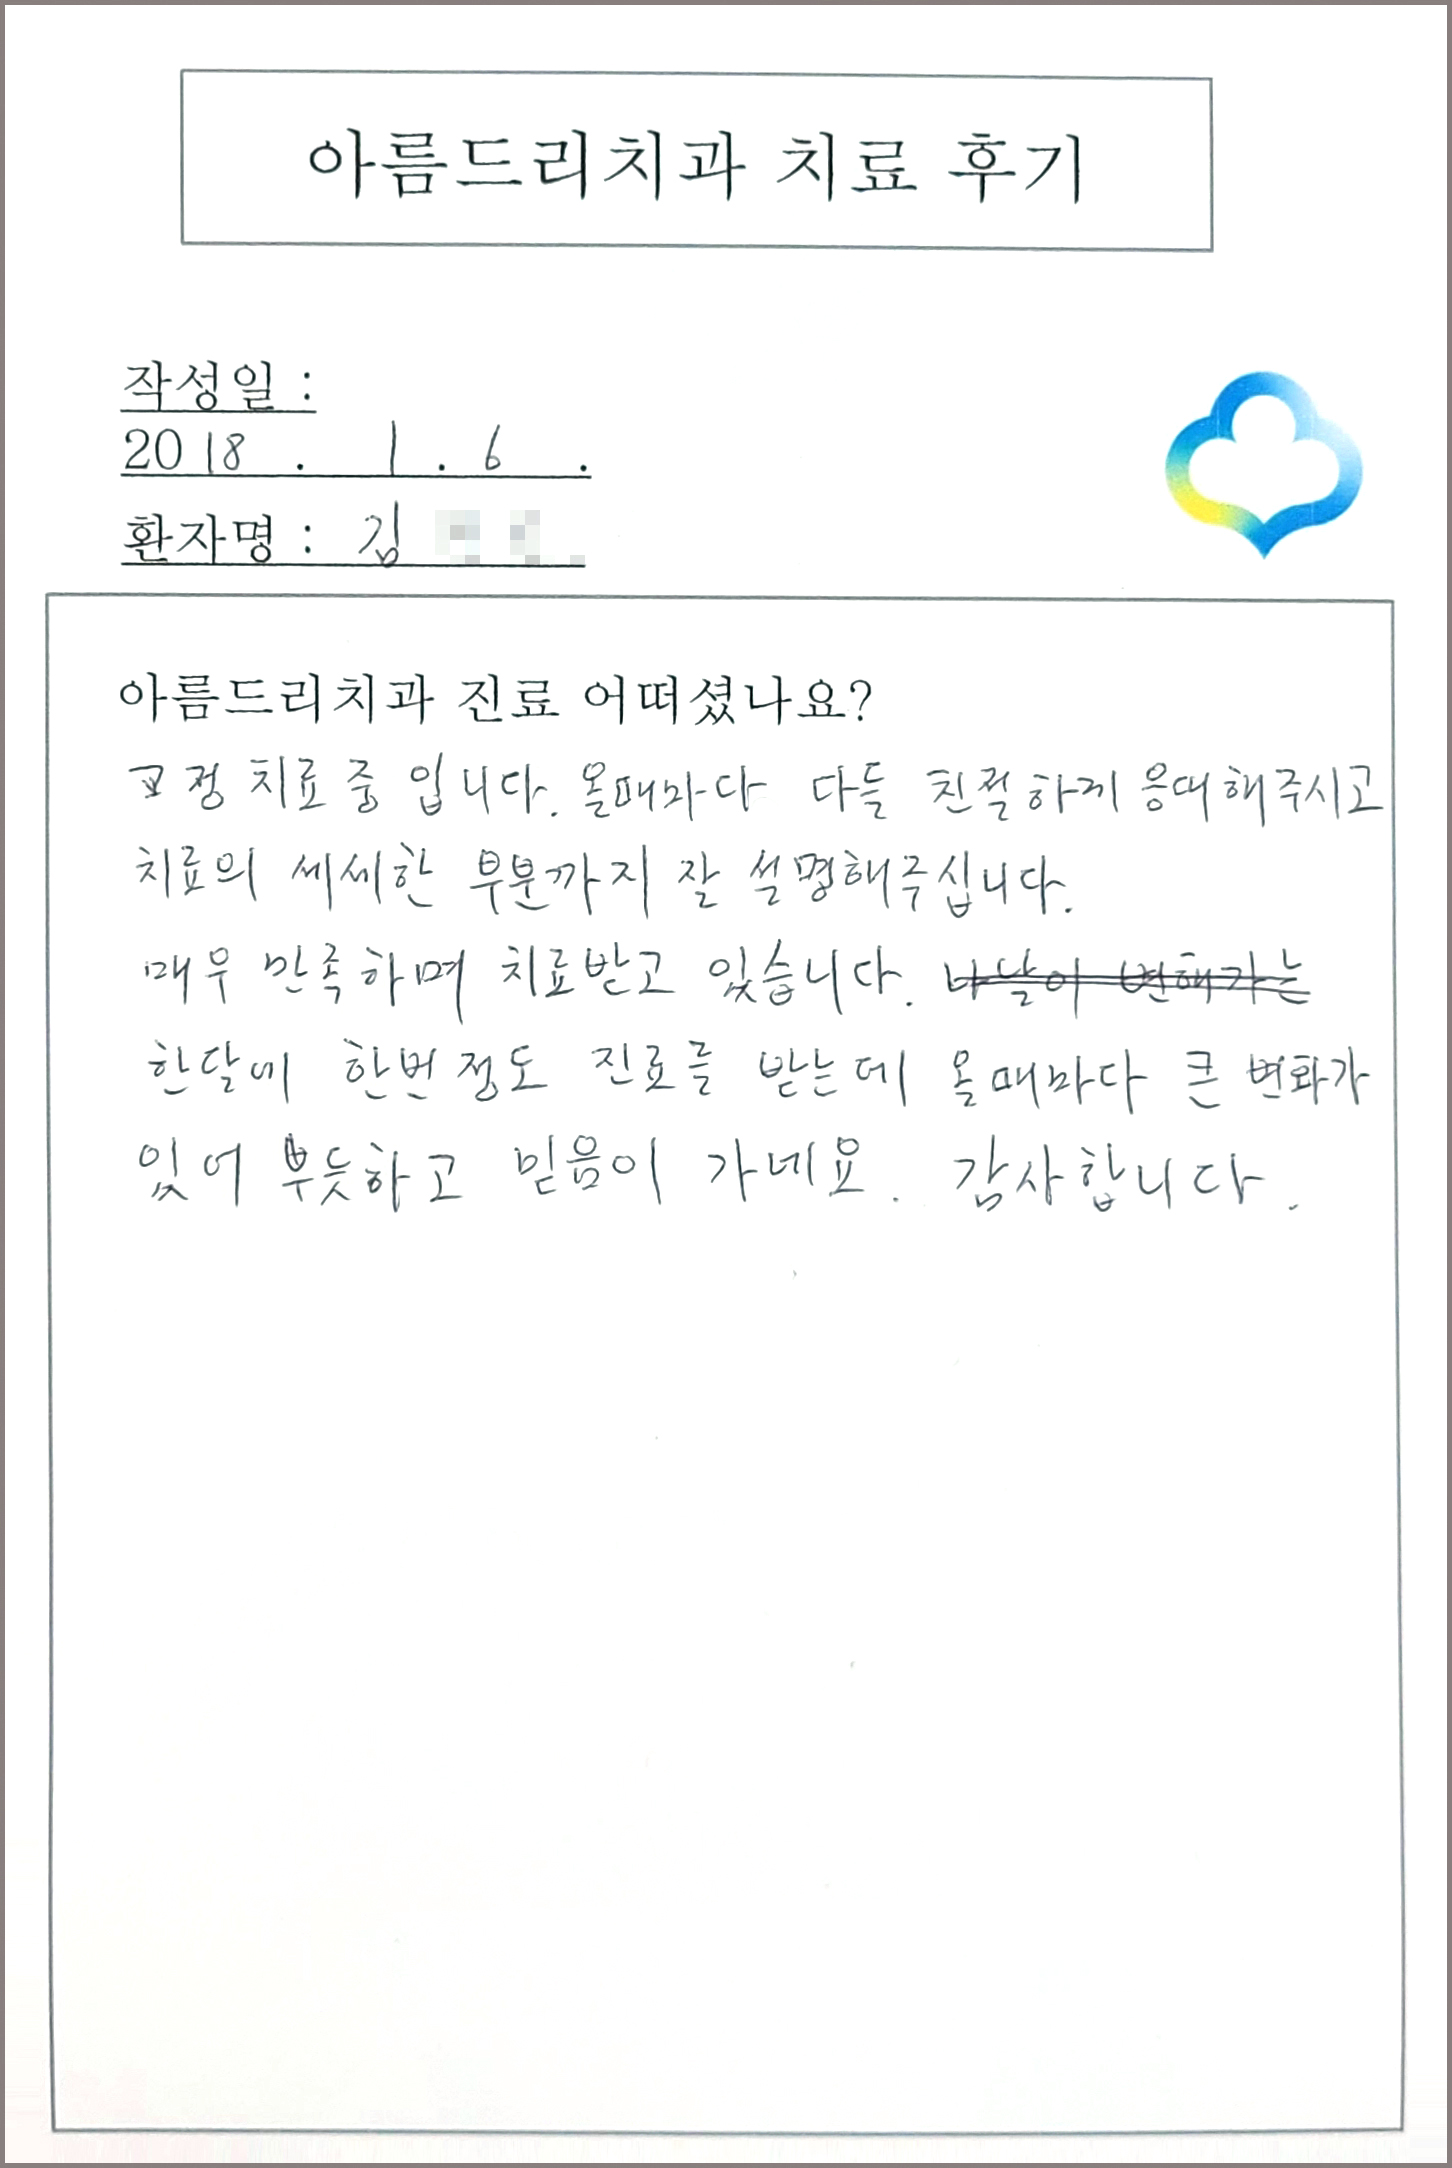 아름드리치과 치료 후기
작성일 :
2018 . 1 . 6 .
환자명 : 김
아름드리치과 진료 어떠셨나요?
교정 치료중 입니다. 올때마다 다들 친절하게 응대해주시고
치료의 세세한 부분까지 잘 설명해주십니다.
매우 만족하며 치료받고 있습니다. 나날이 변해가는
한달에 한번정도 진료를 받는데 올때마다 큰 변화가
있어 뿌듯하고 믿음이 가네요. 감사합니다.